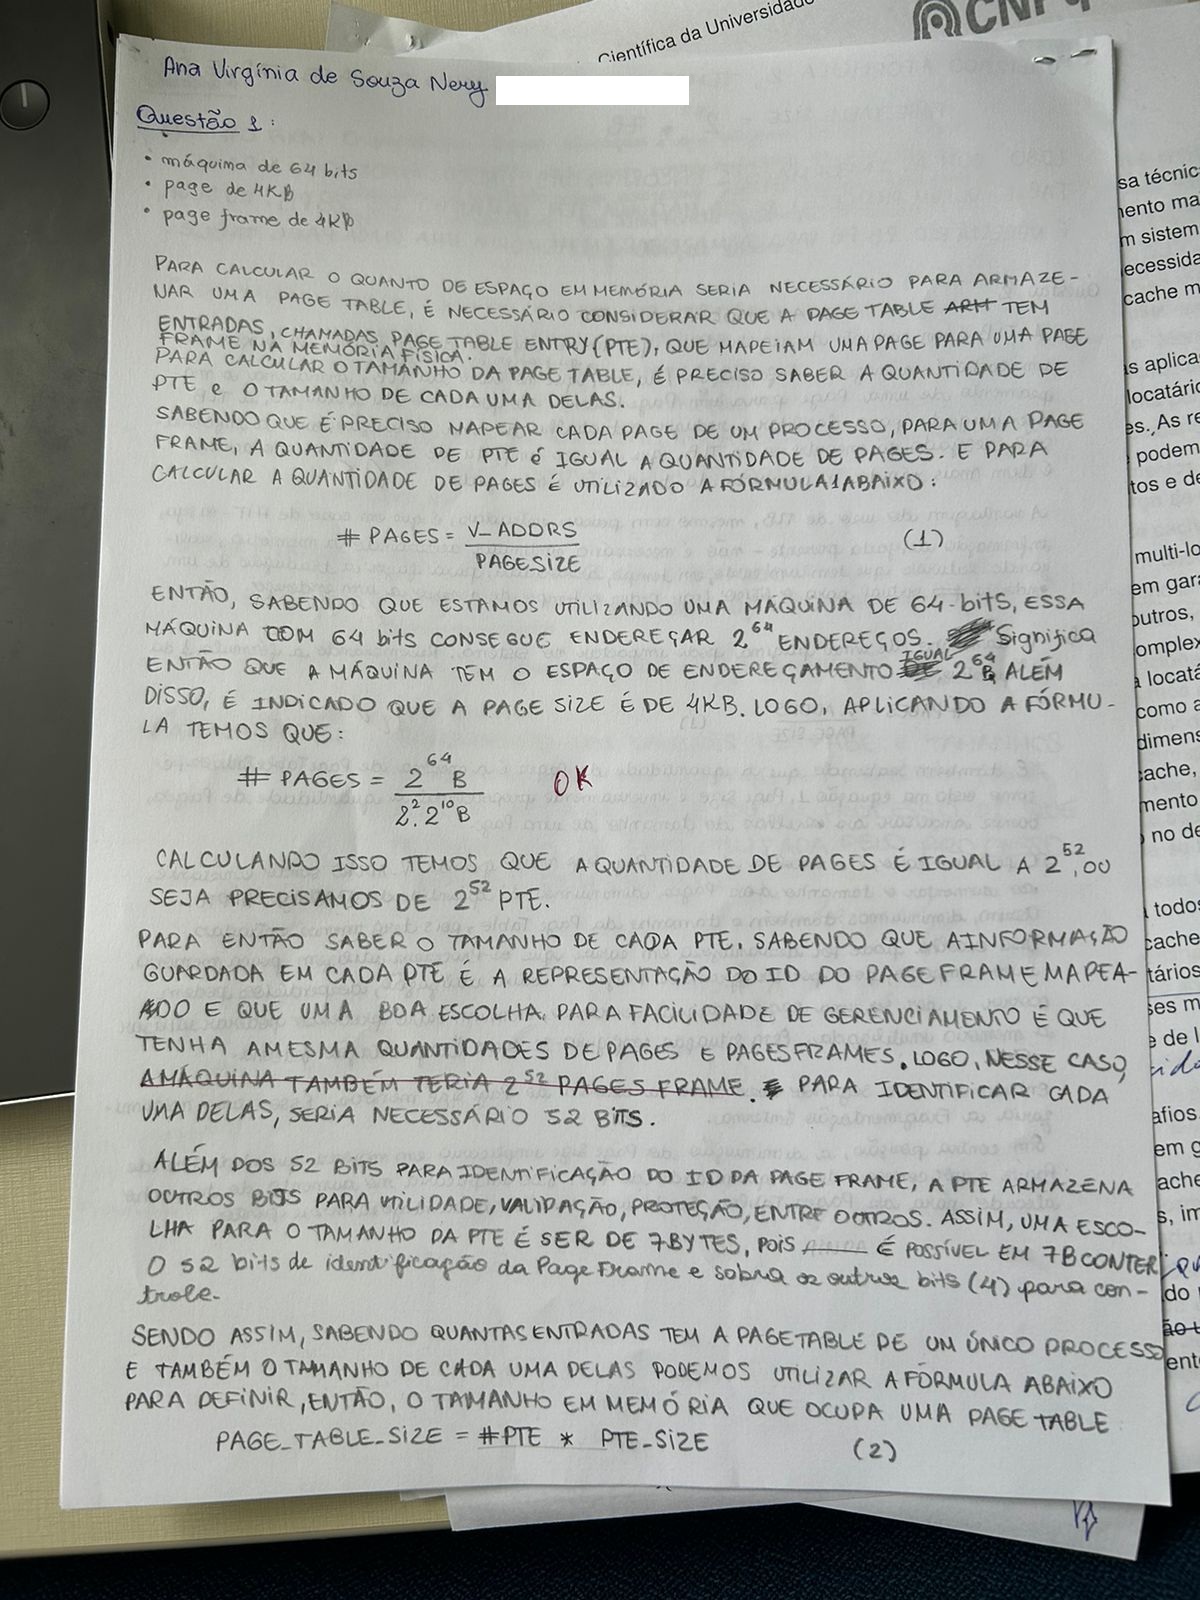 Científica da Universidade
CNPq
Ana Virgínia de Souza Nery
Questão 1:
• máquina de 64 bits
• page de 4KB
• page frame de 4KB
PARA CALCULAR O QUANTO DE ESPAÇO EM MEMÓRIA SERIA NECESSÁRIO PARA ARMAZE-
NAR UMA PAGE TABLE, É NECESSÁRIO CONSIDERAR QUE A PAGE TABLE ARM TEM
ENTRADAS, CHAMADAS PAGE TABLE ENTRY (PTE), QUE MAPEIAM UMA PAGE PARA UMA PAGE
FRAME NA MEMÓRIA FÍSICA.
PARA CALCULAR O TAMANHO DA PAGE TABLE, É PRECISO SABER A QUANTIDADE DE
PTE e O TAMANHO DE CADA UMA DELAS.
SABENDO QUE É PRECISO MAPEAR CADA PAGE DE UM PROCESSO, PARA UMA PAGE
FRAME, A QUANTIDADE DE PTE é IGUAL A QUANTIDADE DE PAGES. E PARA
CALCULAR A QUANTIDADE DE PAGES É UTILIZADO A FÓRMULA 1 ABAIXO:
# PAGES = V_ADDRS / PAGESIZE (1)
ENTÃO, SABENDO QUE ESTAMOS UTILIZANDO UMA MÁQUINA DE 64-bits, ESSA
MÁQUINA COM 64 bits CONSEGUE ENDEREÇAR 2^64 ENDEREÇOS. Significa
ENTÃO QUE A MÁQUINA TEM O ESPAÇO DE ENDEREÇAMENTO IGUAL 2^64 B, ALÉM
DISSO, É INDICADO QUE A PAGE SIZE É DE 4KB. LOGO, APLICANDO A FÓRMU-
LA TEMOS QUE:
# PAGES = 2^64 B / 2^2 . 2^10 B OK
CALCULANDO ISSO TEMOS QUE A QUANTIDADE DE PAGES É IGUAL A 2^52, OU
SEJA PRECISAMOS DE 2^52 PTE.
PARA ENTÃO SABER O TAMANHO DE CADA PTE, SABENDO QUE A INFORMAÇÃO
GUARDADA EM CADA PTE É A REPRESENTAÇÃO DO ID DO PAGE FRAME MAPEA-
DO E QUE UMA BOA ESCOLHA PARA FACILIDADE DE GERENCIAMENTO É QUE
TENHA A MESMA QUANTIDADES DE PAGES E PAGES FRAMES. LOGO, NESSE CASO,
A MÁQUINA TAMBÉM TERIA 2^52 PAGES FRAME. PARA IDENTIFICAR CADA
UMA DELAS, SERIA NECESSÁRIO 52 BITS.
ALÉM DOS 52 BITS PARA IDENTIFICAÇÃO DO ID DA PAGE FRAME, A PTE ARMAZENA
OUTROS BITS PARA UTILIDADE, VALIDAÇÃO, PROTEÇÃO, ENTRE OUTROS. ASSIM, UMA ESCO-
LHA PARA O TAMANHO DA PTE É SER DE 7 BYTES, POIS É POSSÍVEL EM 7B CONTER
O 52 bits de identificação da Page Frame e sobra os outros bits (4) para con-
trole.
SENDO ASSIM, SABENDO QUANTAS ENTRADAS TEM A PAGE TABLE DE UM ÚNICO PROCESSO
E TAMBÉM O TAMANHO DE CADA UMA DELAS PODEMOS UTILIZAR A FÓRMULA ABAIXO
PARA DEFINIR, ENTÃO, O TAMANHO EM MEMÓRIA QUE OCUPA UMA PAGE TABLE
PAGE_TABLE_SIZE = #PTE * PTE_SIZE (2)